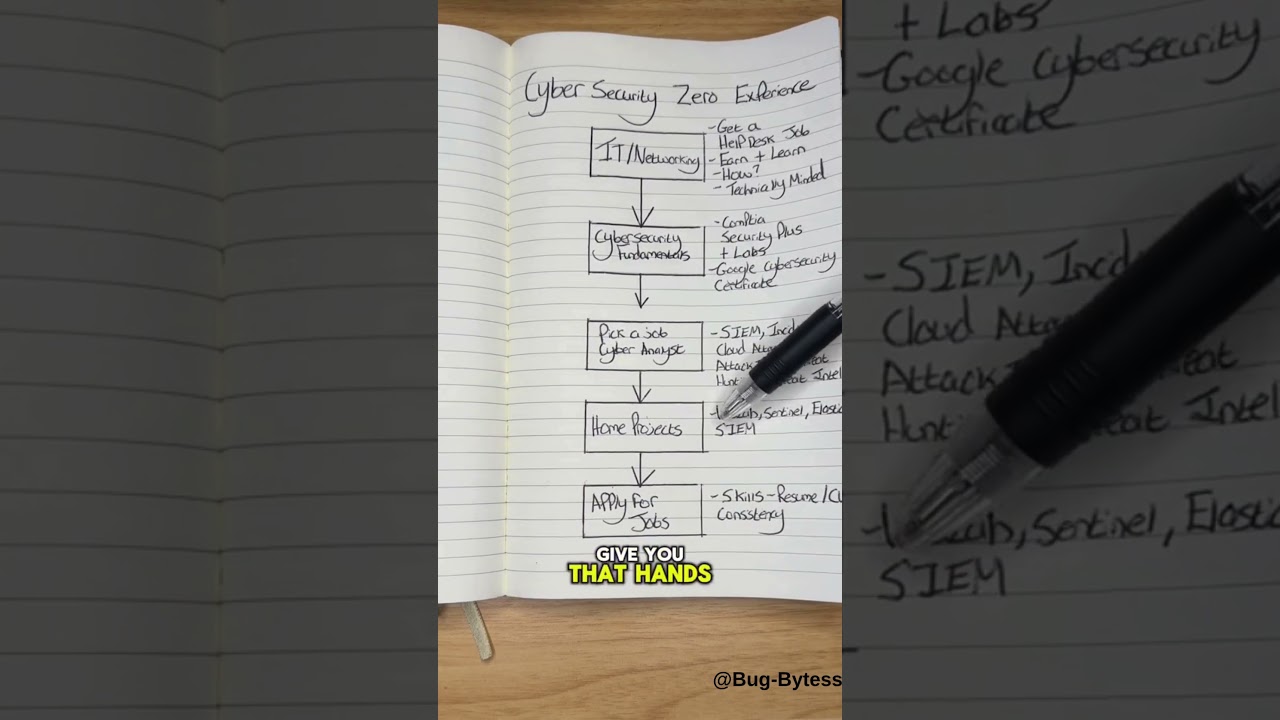 Cyber Security Zero Experience
IT/Networking
-Get a
HelpDesk Job
-Earn + Learn
-How?
-Technically Minded
Cybersecurity
Fundamentals
-Comptia
Security Plus
+ Labs
-Google Cybersecurity
Certificate
Pick a job
Cyber Analyst
-SIEM, Incid
Cloud Attac
Attack
Hunt Intel
Home Projects
Sentinel, Elastic
SIEM
APPly For
Jobs
-Skills-Resume/CV
Consstency
GIVE YOU
THAT HANDS
@Bug-Bytess
+ Labs
-Google Cybersecurity
Certificate
-SIEM, Incid
Cloud Attac
Attack
Hunt Intel
Sentinel, Elastic
SIEM